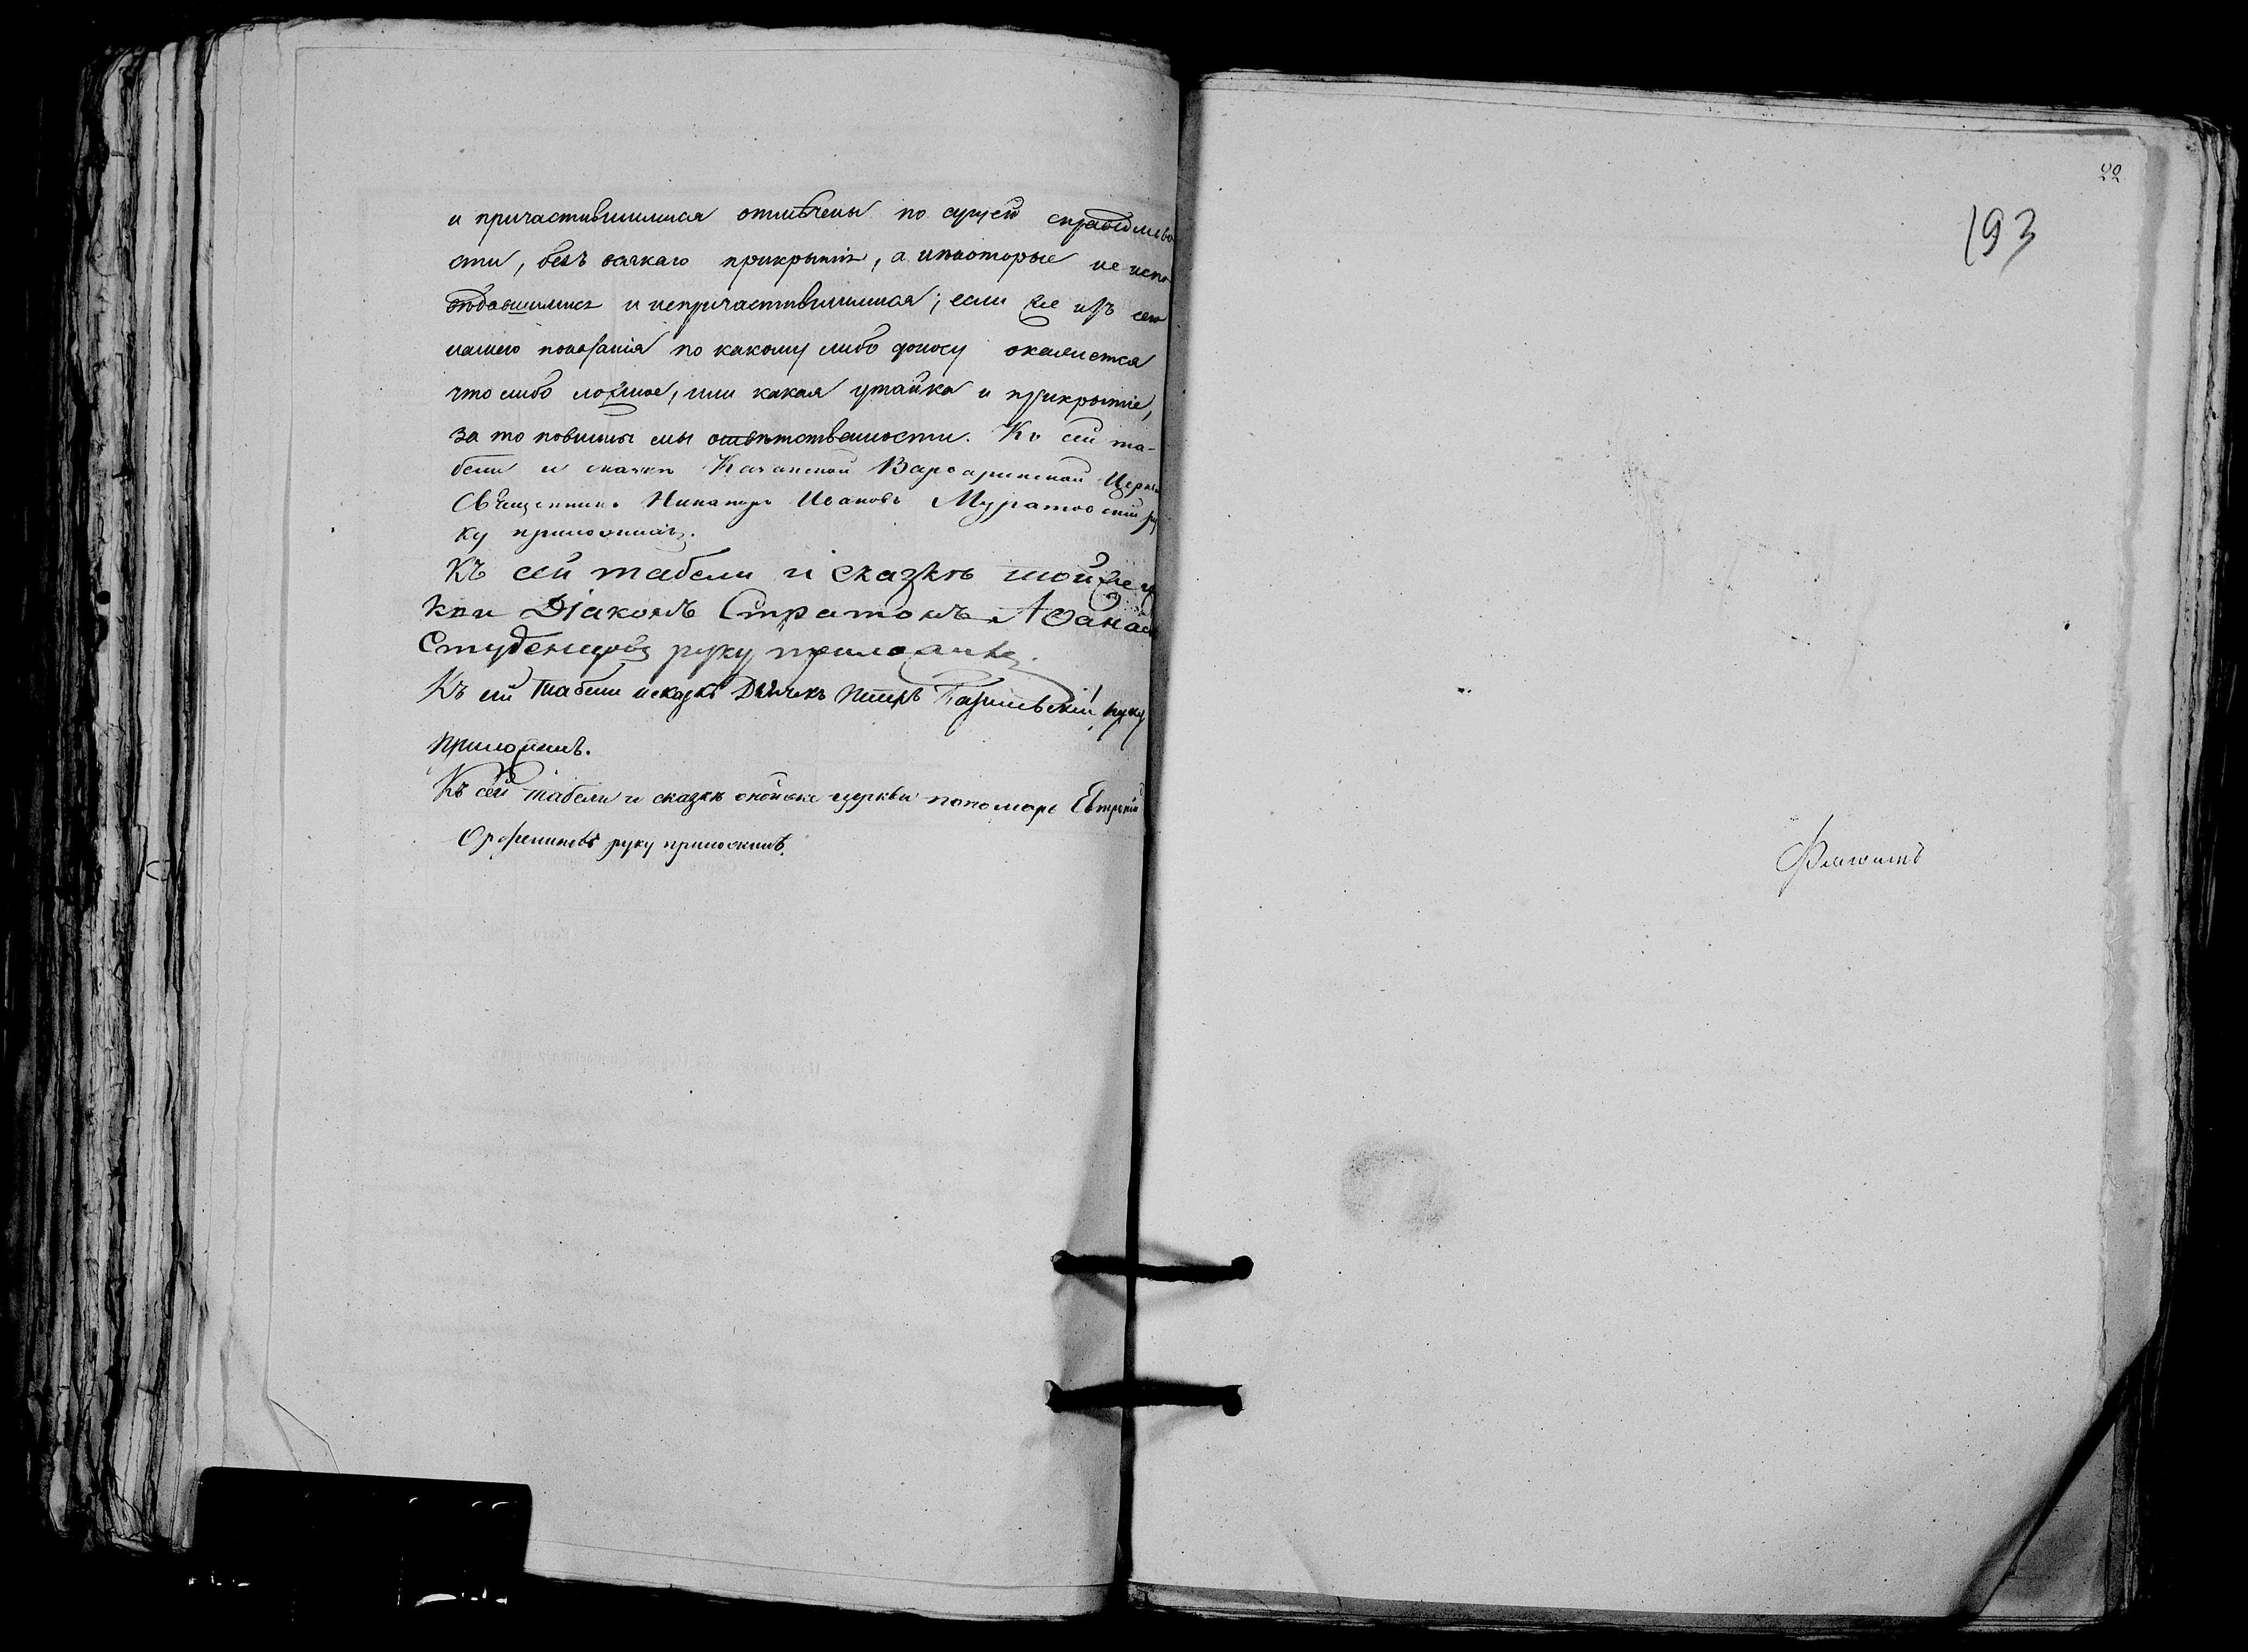 и причастившимися отмѣчены по сущей справедливо
сти, безъ всякаго прикрытія, а нѣкоторые не испо
вѣдавшимися и непричастившимися; если же изъ сего
нашего показанія по какому либо доносу окажется
что либо ложное, или какая утайка и прикрытіе,
за то повинны мы отвѣтственности. Къ сей та-
бели и сказкѣ Казанской Варваринской Церкви
Священникъ Никаноръ Ивановъ Муратовскій ру
ку приложилъ.
Къ сей табели и сказкѣ той же ц
кви Діаконъ Стратонъ Аѳанась
Студенцовъ руку приложилъ.
Къ сей табели и сказкѣ Дьячекъ Петръ руку
приложилъ.
Къ сей табели и сказкѣ оной же церкви пономарь
руку приложилъ.
22
193